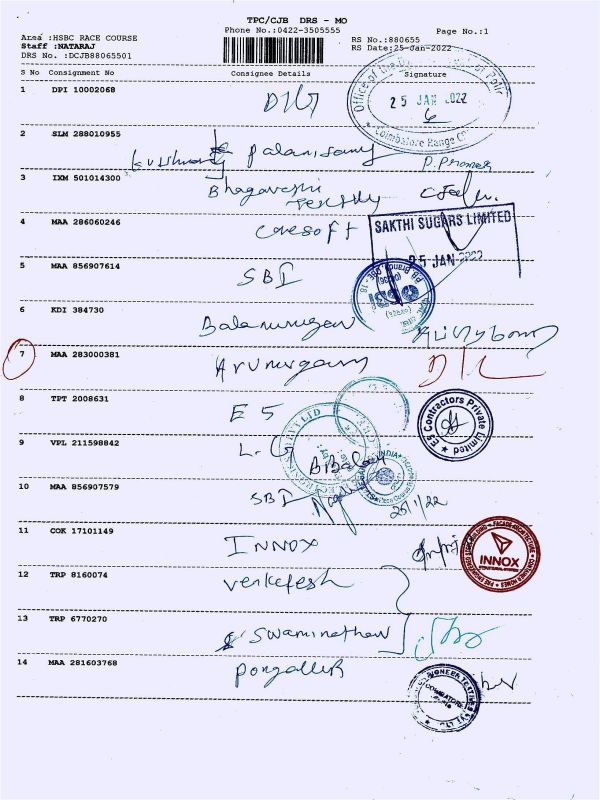 TPC/CJB DRS - MO
Phone No.:0422-3505555
Page No.:1
Area :HSBC RACE COURSE
Staff :NATARAJ
DRS No. :DCJB88065501
RS No.:880655
RS Date:25-Jan-2022
S No Consignment No Consignee Details Signature
1 DPI 10002068 DIG
Office of the
25 JAN 2022
Coimbatore Range
2 SLM 288010955
Palanisamy
3 IXM 501014300 Bhagavathi
4 MAA 286060246 Caresoft
SAKTHI SUGARS LIMITED
25 JAN 2022
5 MAA 856907614 SBI
6 KDI 384730 Balamurugan
7 MAA 283000381 Arumugam
8 TPT 2008631 E5
E5 Contractors Private Limited
9 VPL 211598842 L.G
10 MAA 856907579 SBI
25/1/22
11 COK 17101149 INNOX
INNOX
12 TRP 8160074 Venkatesh
13 TRP 6770270 Swaminathan
14 MAA 281603768
COIMBATORE